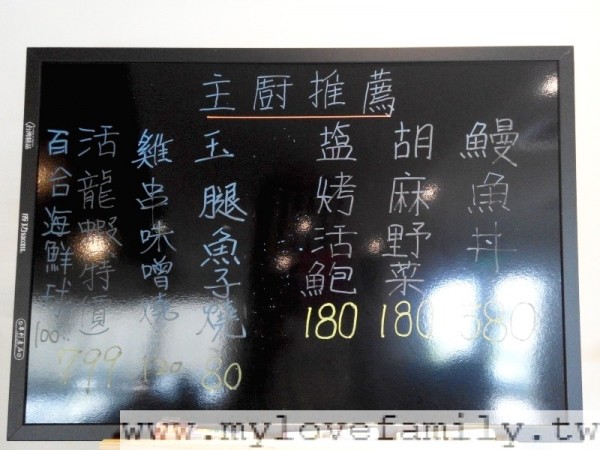 主厨推薦
鰻魚丼
380
胡麻野菜
180
塩烤活鮑
180
玉腿魚子燒
80
雞串味噌燒
120
活龍蝦(特價)
799
百合海鮮球
100
www.mylovefamily.tw